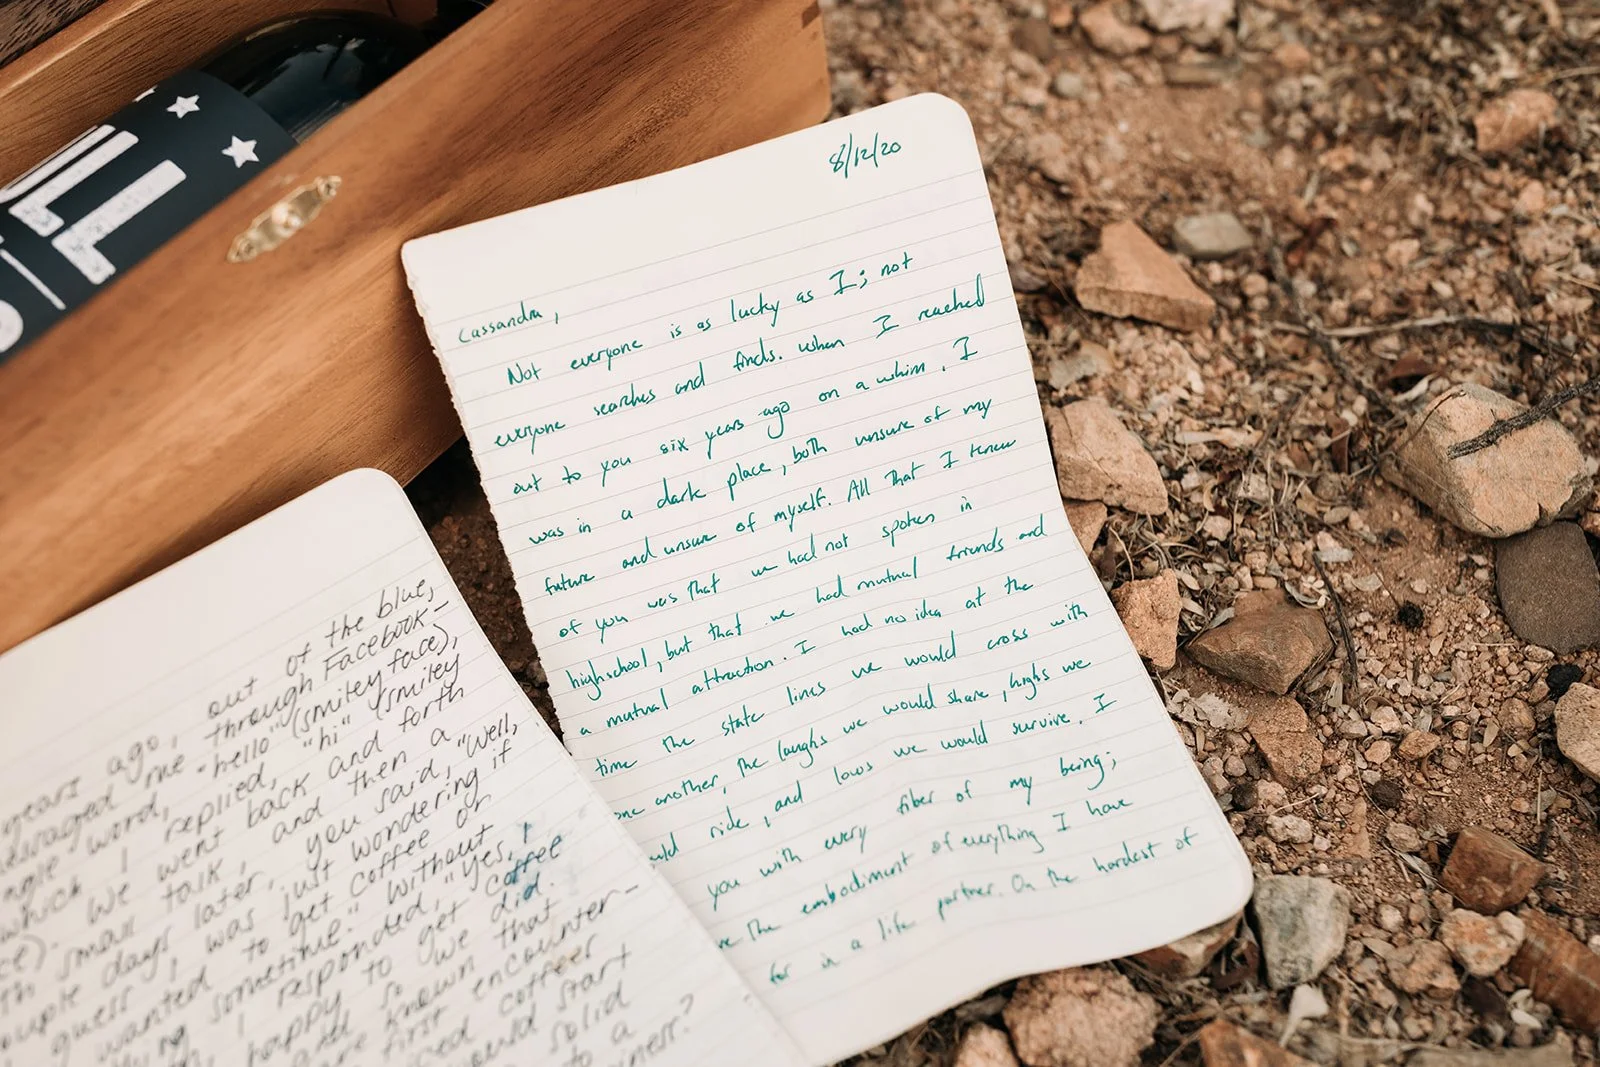 8/12/20
Cassandra,
Not everyone is as lucky as I; not
everyone searches and finds. When I reached
out to you six years ago on a whim, I
was in a dark place, both unsure of my
future and unsure of myself. All that I knew
of you was that we had not spoken in
highschool, but that we had mutual friends and
a mutual attraction. I had no idea at the
time the state lines we would cross with
one another, the laughs we would share, highs we
ride, and lows we would survive. I
you with every fiber of my being;
the embodiment of everything I have
for in a life partner. On the hardest of
years ago, out of the blue,
me through Facebook-
word, "hello" (smiley face),
which I replied, "hi" (smiley
We went back and forth
small talk, and then a
couple days later, you said, "Well,
guess I was just wondering if
wanted to get coffee or
sometime." Without
I responded, "Yes, I
happy to get coffee
and so we did.
known that
first encounter-
coffee
would start
solid
to a